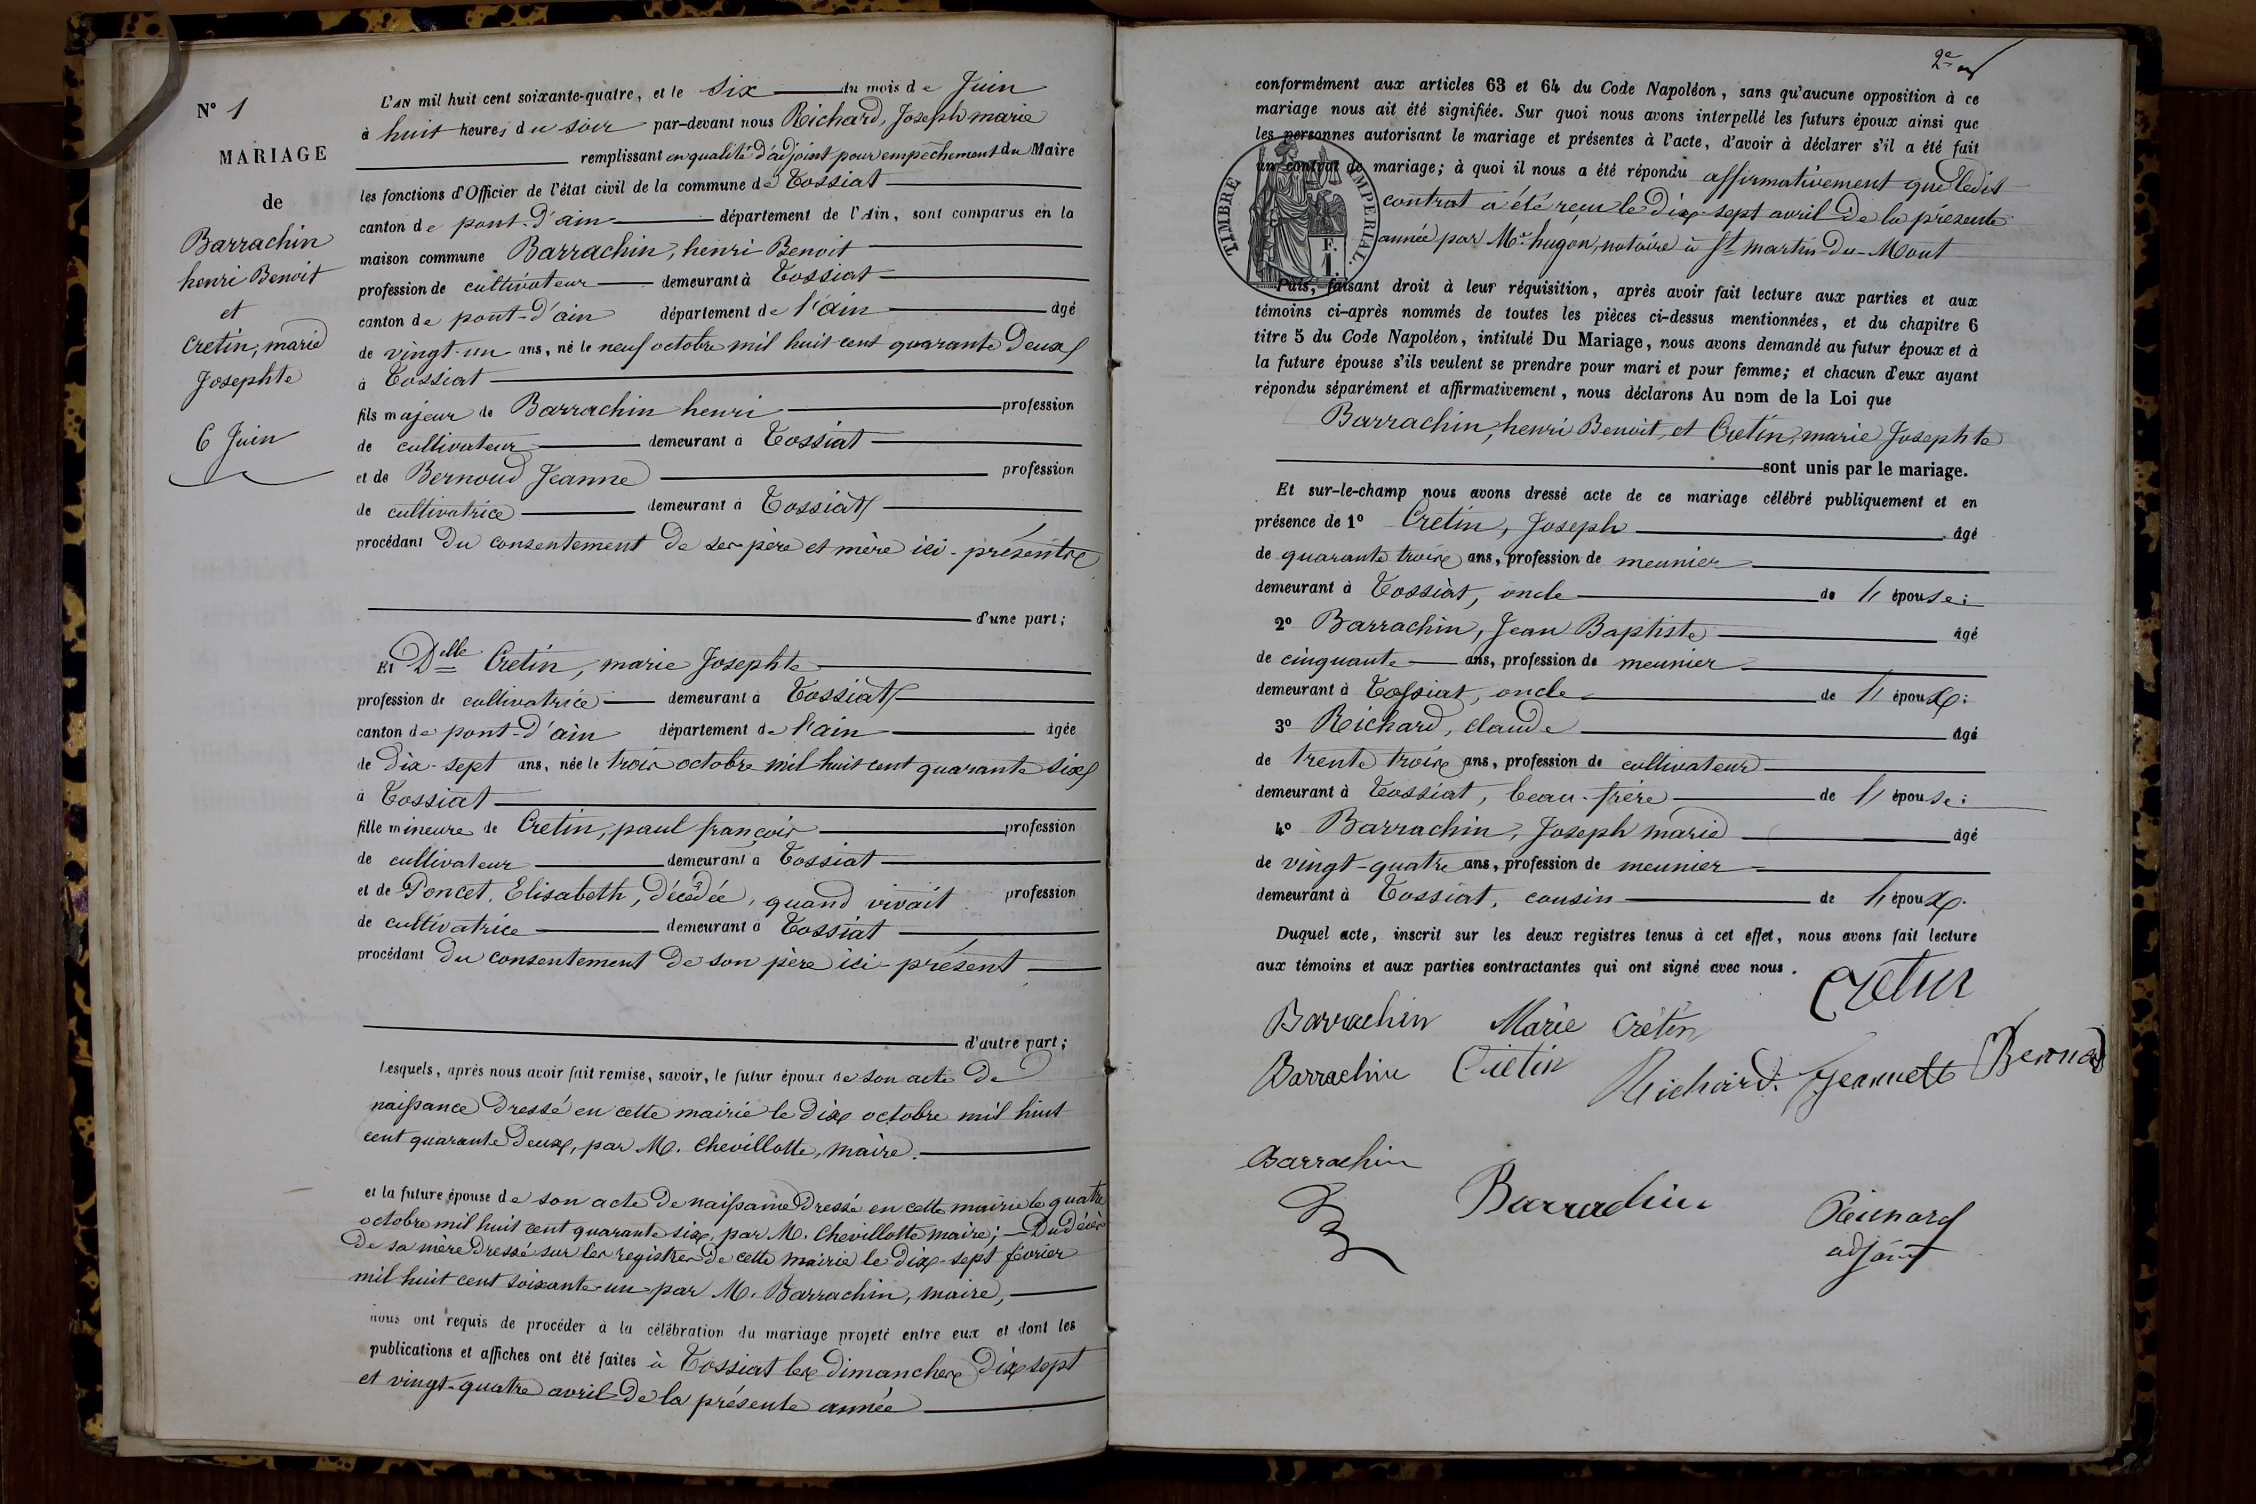 N° 1
MARIAGE
de
Barrachin
henri Benoit
et
Cretin, marie
Josephte
6 Juin
L'AN mil huit cent soixante-quatre, et le six du mois de Juin
à huit heures du soir par-devant nous Richard, Joseph marie
remplissant en qualité d'adjoint pour empêchement du Maire
les fonctions d'Officier de l'état civil de la commune de Tossiat
canton de pont-d'ain département de l'Ain, sont comparus en la
maison commune Barrachin, henri Benoit
profession de cultivateur demeurant à Tossiat
canton de pont-d'ain département de l'ain âgé
de vingt-un ans, né le neuf octobre mil huit cent quarante deux
à Tossiat
fils majeur de Barrachin henri profession
de cultivateur demeurant à Tossiat
et de Bernoud Jeanne profession
de cultivatrice demeurant à Tossiat
procédant du consentement de ses père et mère ici-présents
d'une part;
Et Delle Cretin, marie Josephte
profession de cultivatrice demeurant à Tossiat
canton de pont-d'ain département de l'ain âgée
de dix-sept ans, née le trois octobre mil huit cent quarante six
à Tossiat
fille mineure de Cretin, paul françois profession
de cultivateur demeurant à Tossiat
et de Poncet, Elisabeth, décédée, quand vivait profession
de cultivatrice demeurant à Tossiat
procédant du consentement de son père ici-présent
d'autre part;
Lesquels, après nous avoir fait remise, savoir, le futur époux de son acte de
naissance dressé en cette mairie le dix octobre mil huit
cent quarante deux, par M. Chevillotte, maire.
et la future épouse de son acte de naissance dressé en cette mairie le quatre
octobre mil huit cent quarante six, par M. Chevillotte maire; - Du décès
de sa mère dressé sur les registres de cette mairie le dix-sept février
mil huit cent soixante-un par M. Barrachin, maire,
nous ont requis de procéder à la célébration du mariage projeté entre eux et dont les
publications et affiches ont été faites à Tossiat les dimanches dix sept
et vingt-quatre avril de la présente année
2e
conformément aux articles 63 et 64 du Code Napoléon, sans qu'aucune opposition à ce
mariage nous ait été signifiée. Sur quoi nous avons interpellé les futurs époux ainsi que
les personnes autorisant le mariage et présentes à l'acte, d'avoir à déclarer s'il a été fait
un contrat de mariage; à quoi il nous a été répondu affirmativement que ledit
contrat a été reçu le dix-sept avril de la présente
année par Me hugon, notaire à St martin-du-Mont
TIMBRE IMPERIAL.
F.
1.
Puis, faisant droit à leur réquisition, après avoir fait lecture aux parties et aux
témoins ci-après nommés de toutes les pièces ci-dessus mentionnées, et du chapitre 6
titre 5 du Code Napoléon, intitulé Du Mariage, nous avons demandé au futur époux et à
la future épouse s'ils veulent se prendre pour mari et pour femme; et chacun d'eux ayant
répondu séparément et affirmativement, nous déclarons Au nom de la Loi que
Barrachin, henri Benoit, et Cretin, marie Josephte
sont unis par le mariage.
Et sur-le-champ nous avons dressé acte de ce mariage célébré publiquement et en
présence de 1° Cretin, Joseph âgé
de quarante trois ans, profession de meunier
demeurant à Tossiat, oncle de l'épouse;
2° Barrachin, Jean Baptiste âgé
de cinquante ans, profession de meunier
demeurant à Tossiat, oncle de l'époux;
3° Richard, claude âgé
de trente trois ans, profession de cultivateur
demeurant à Tossiat, beau-frère de l'épouse;
4° Barrachin, Joseph marie âgé
de vingt-quatre ans, profession de meunier
demeurant à Tossiat, cousin de l'époux.
Duquel acte, inscrit sur les deux registres tenus à cet effet, nous avons fait lecture
aux témoins et aux parties contractantes qui ont signé avec nous.
Cretin
Barrachin Marie Crétin
Barrachin Cretin Richard. Jeannette
Barrachin
Barrachin
Richard
adjoint